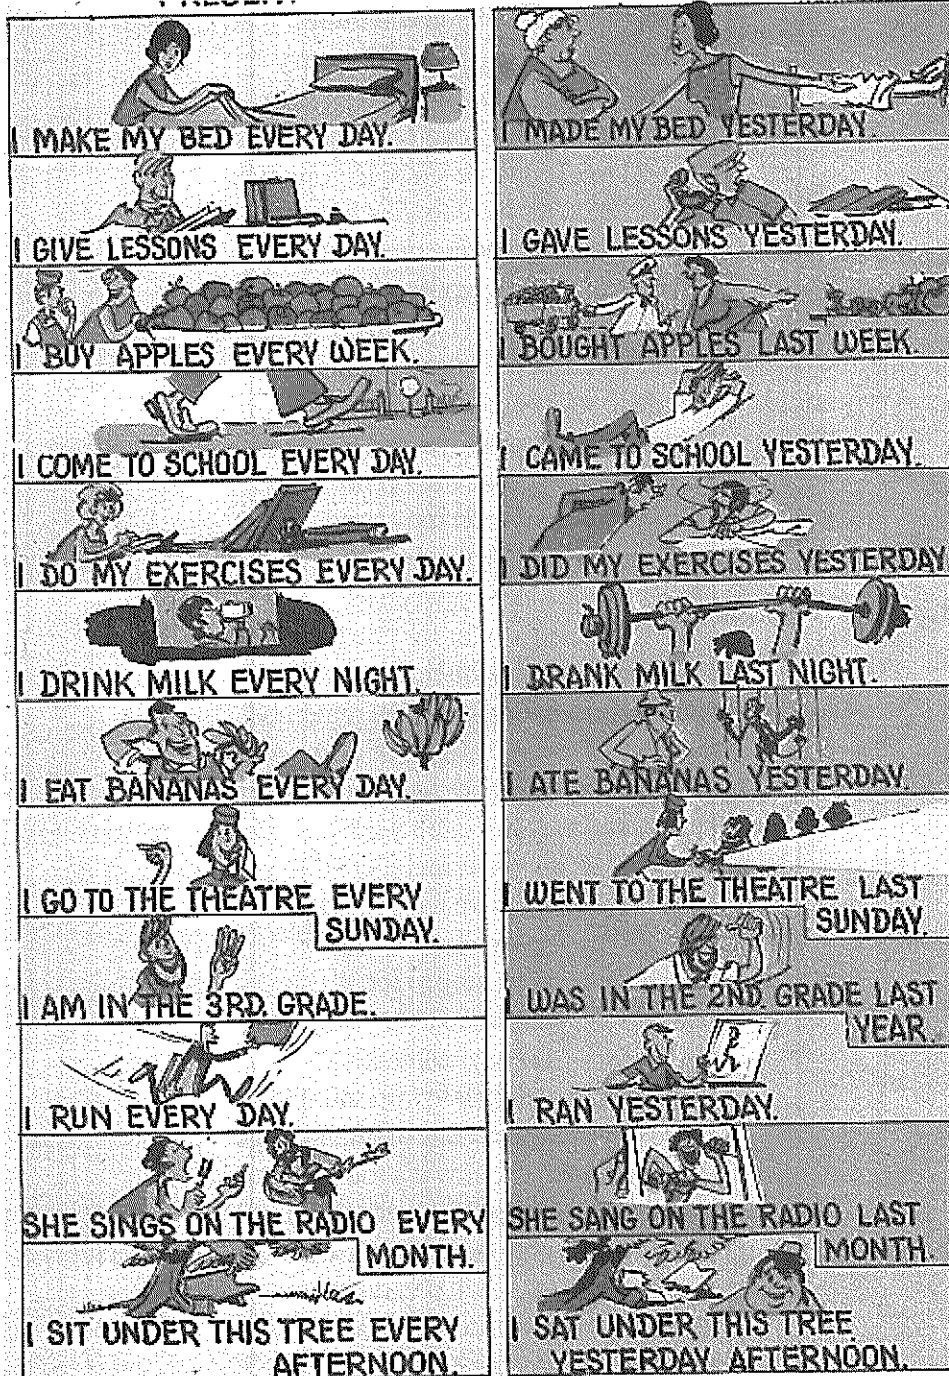 I MAKE MY BED EVERY DAY.
I GIVE LESSONS EVERY DAY.
I BUY APPLES EVERY WEEK.
I COME TO SCHOOL EVERY DAY.
I DO MY EXERCISES EVERY DAY.
I DRINK MILK EVERY NIGHT.
I EAT BANANAS EVERY DAY.
I GO TO THE THEATRE EVERY
SUNDAY.
I AM IN THE 3RD. GRADE.
I RUN EVERY DAY.
SHE SINGS ON THE RADIO EVERY
MONTH.
I SIT UNDER THIS TREE EVERY
AFTERNOON.
I MADE MY BED YESTERDAY.
I GAVE LESSONS YESTERDAY.
I BOUGHT APPLES LAST WEEK.
I CAME TO SCHOOL YESTERDAY.
I DID MY EXERCISES YESTERDAY
I DRANK MILK LAST NIGHT.
I ATE BANANAS YESTERDAY.
I WENT TO THE THEATRE LAST
SUNDAY.
I WAS IN THE 2ND. GRADE LAST
YEAR.
I RAN YESTERDAY.
SHE SANG ON THE RADIO LAST
MONTH.
I SAT UNDER THIS TREE
YESTERDAY AFTERNOON.